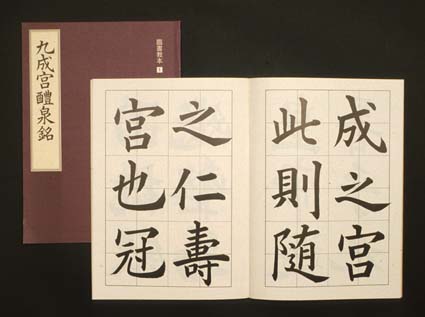 九成宮醴泉銘
圖書教本 1
成之宮
此則隨
之仁壽
宮也冠